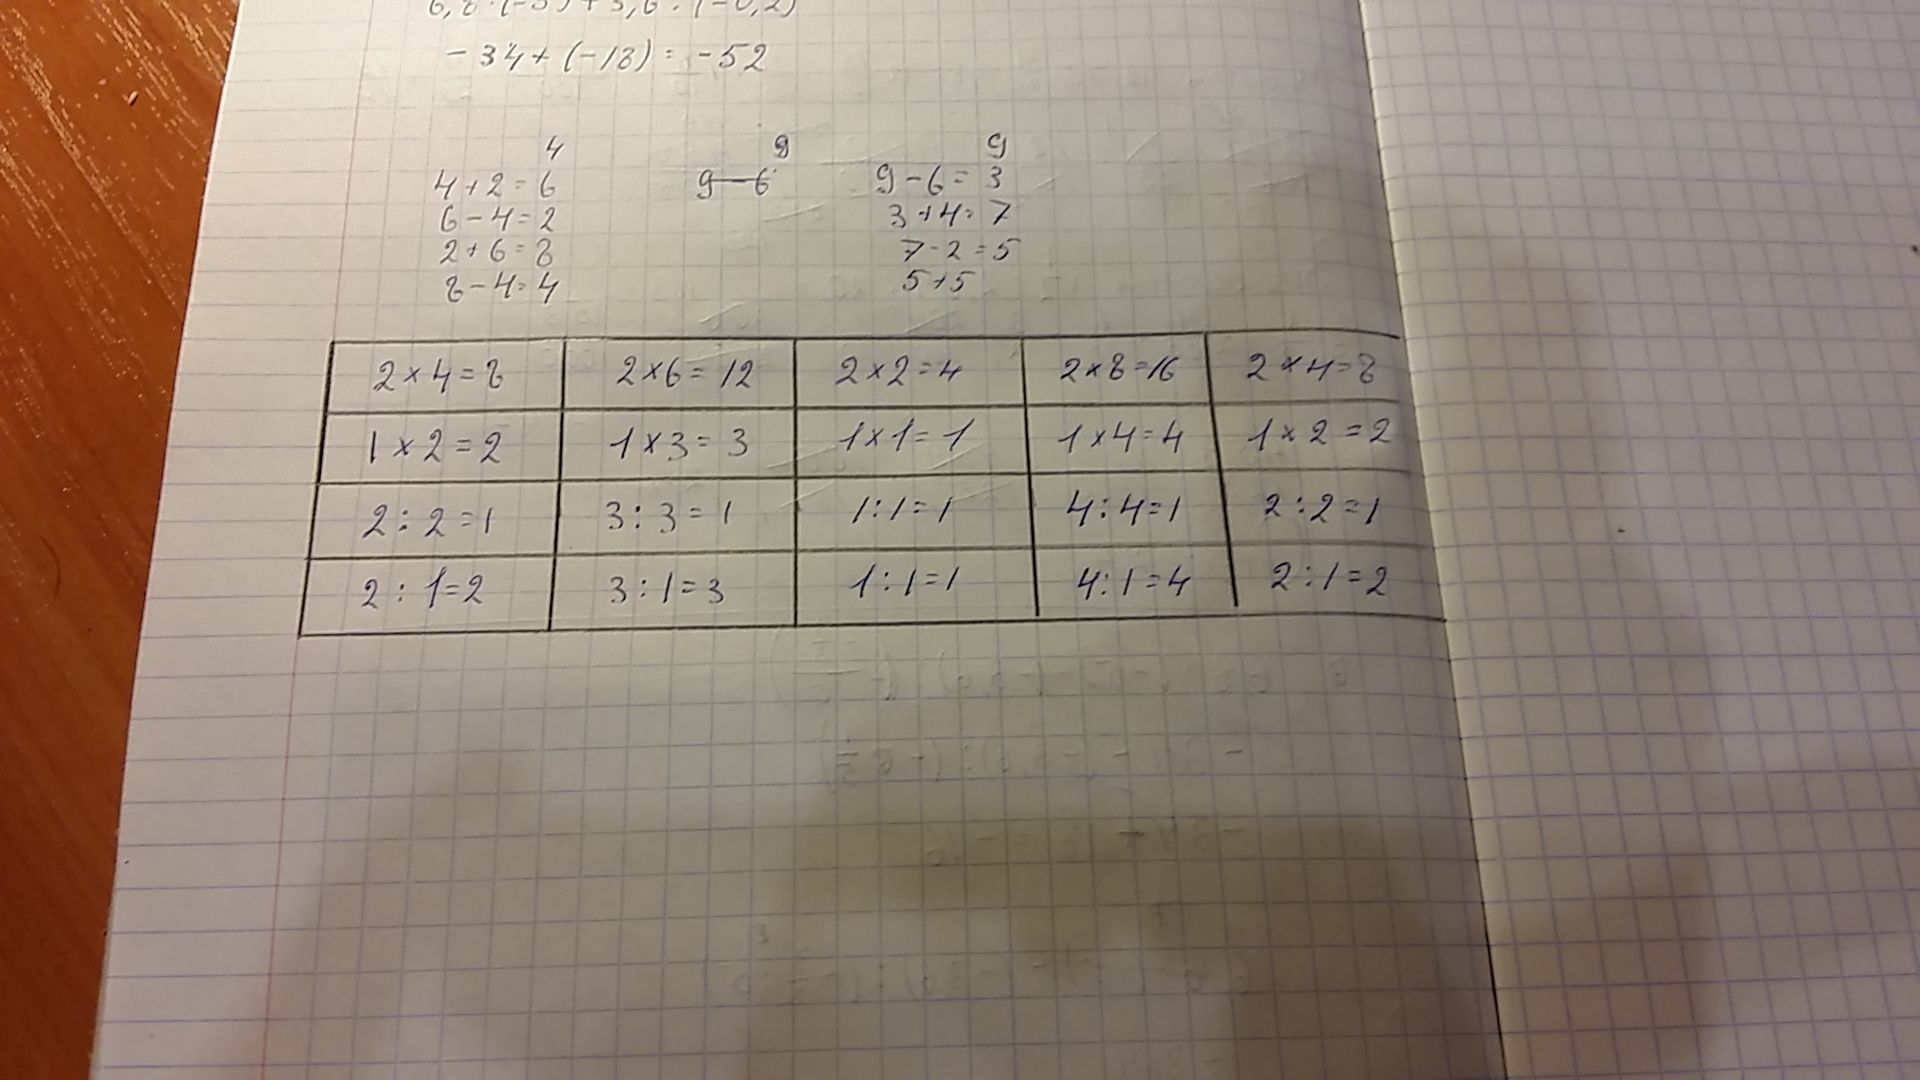 6,8 · (-5) + 3,6 : (-0,2)
- 34 + (-18) = -52
4 9 9
4 + 2 = 6 9 - 6 9 - 6 = 3
6 - 4 = 2 3 + 4 = 7
2 + 6 = 8 7 - 2 = 5
8 - 4 = 4 5 + 5
2 × 4 = 8 2 × 6 = 12 2 × 2 = 4 2 × 8 = 16 2 × 4 = 8
1 × 2 = 2 1 × 3 = 3 1 × 1 = 1 1 × 4 = 4 1 × 2 = 2
2 : 2 = 1 3 : 3 = 1 1 : 1 = 1 4 : 4 = 1 2 : 2 = 1
2 : 1 = 2 3 : 1 = 3 1 : 1 = 1 4 : 1 = 4 2 : 1 = 2